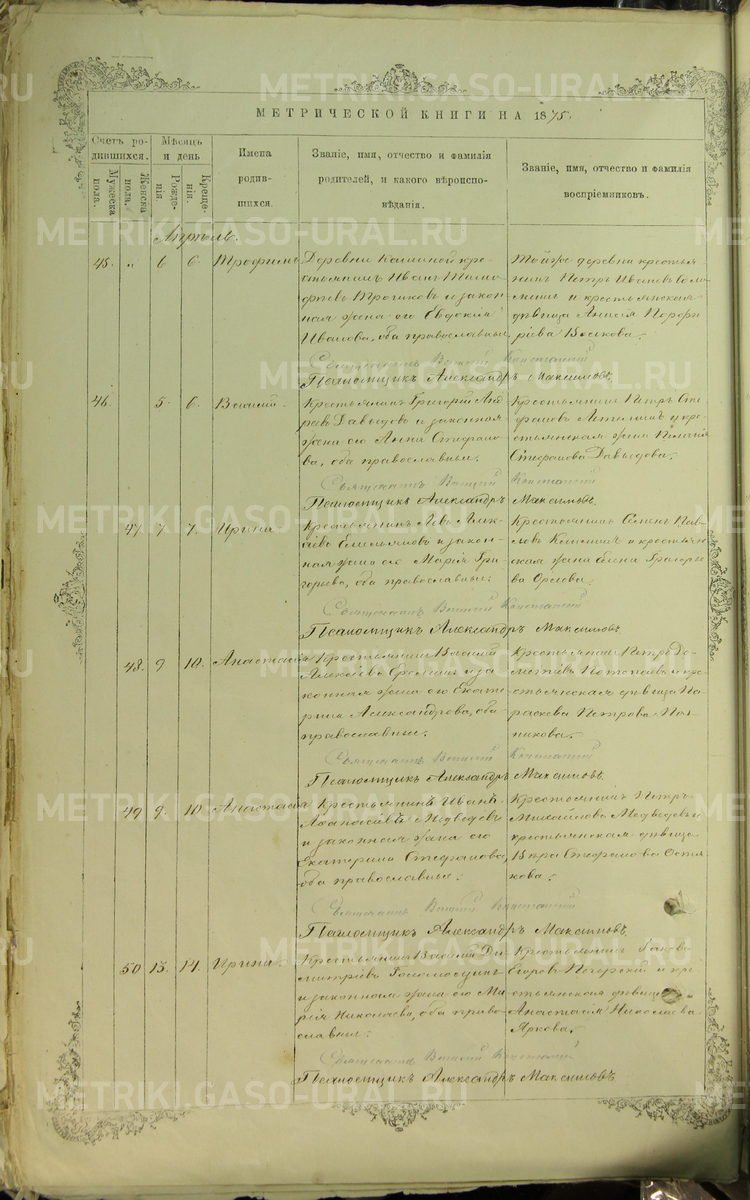 МЕТРИЧЕСКОЙ КНИГИ НА 1875.
Счетъ ро-
дившихся.
Мужеска
пола.
Женска
пола.
Мѣсяцъ
и день
Рожде-
нія.
Креще-
нія.
Имена
родив-
шихся.
Званіе, имя, отчество и фамилія
родителей, и какого вѣроиспо-
вѣданія.
Званіе, имя, отчество и фамилія
воспріемниковъ.
Апрѣль.
45. " 6 6. Трофимъ
Деревни кре-
стьянинъ Иванъ Тимо-
фѣевъ и закон-
ная жена его Евдокія
Иванова, оба православные
Тойже деревни крестья-
нинъ Петръ Ивановъ
и крестьянская
дѣвица Порфи-
рьева
Священникъ
Псаломщикъ Александръ Максимовъ.
46. 5. 6. Василій
Крестьянинъ Григорій Анд-
реевъ Давыдовъ и законная
жена его Анна Стефано-
ва, оба православные.
Крестьянинъ Петръ Сте-
фановъ и кре-
стьянская жена Пелагія
Стефанова Давыдова.
Священникъ
Псаломщикъ Александръ Максимовъ.
47. 7. 7. Ирина
Крестьянинъ Левъ Алек-
сѣевъ Емельяновъ и закон-
ная жена его Марія Гри-
горьева, оба православные.
Крестьянинъ Пав-
ловъ и крестьян-
ская жена Елена Григорье-
ва Орлова.
Священникъ
Псаломщикъ Александръ Максимовъ.
48. 9 10. Анастасія
Крестьянинъ Василій
Алексѣевъ и за-
конная жена его Екате-
рина Александрова, оба
православные.
Крестьянинъ Петръ До-
метіевъ Потапов и кре-
стьянская дѣвица Па-
раскева Петрова
Священникъ
Псаломщикъ Александръ Максимовъ.
49 9. 10 Анастасія
Крестьянинъ Иванъ
Аѳанасіевъ Медвѣдевъ
и законная жена его
Екатерина Стефанова,
оба православные.
Крестьянинъ Петръ
Михайловъ Медвѣдевъ и
крестьянская дѣвица
Вѣра Стефанова
Священникъ
Псаломщикъ Александръ Максимовъ.
50 13. 14. Ирина
Крестьянинъ Василій Ди-
митріевъ
и законная жена его Ма-
рія Николаева, оба право-
славные.
Крестьянинъ Яковъ
Егоровъ и кре-
стьянская дѣвица
Анастасія Николаева
Яркова.
Священникъ
Псаломщикъ Александръ Максимовъ
METRIKI.GASO-URAL.RU